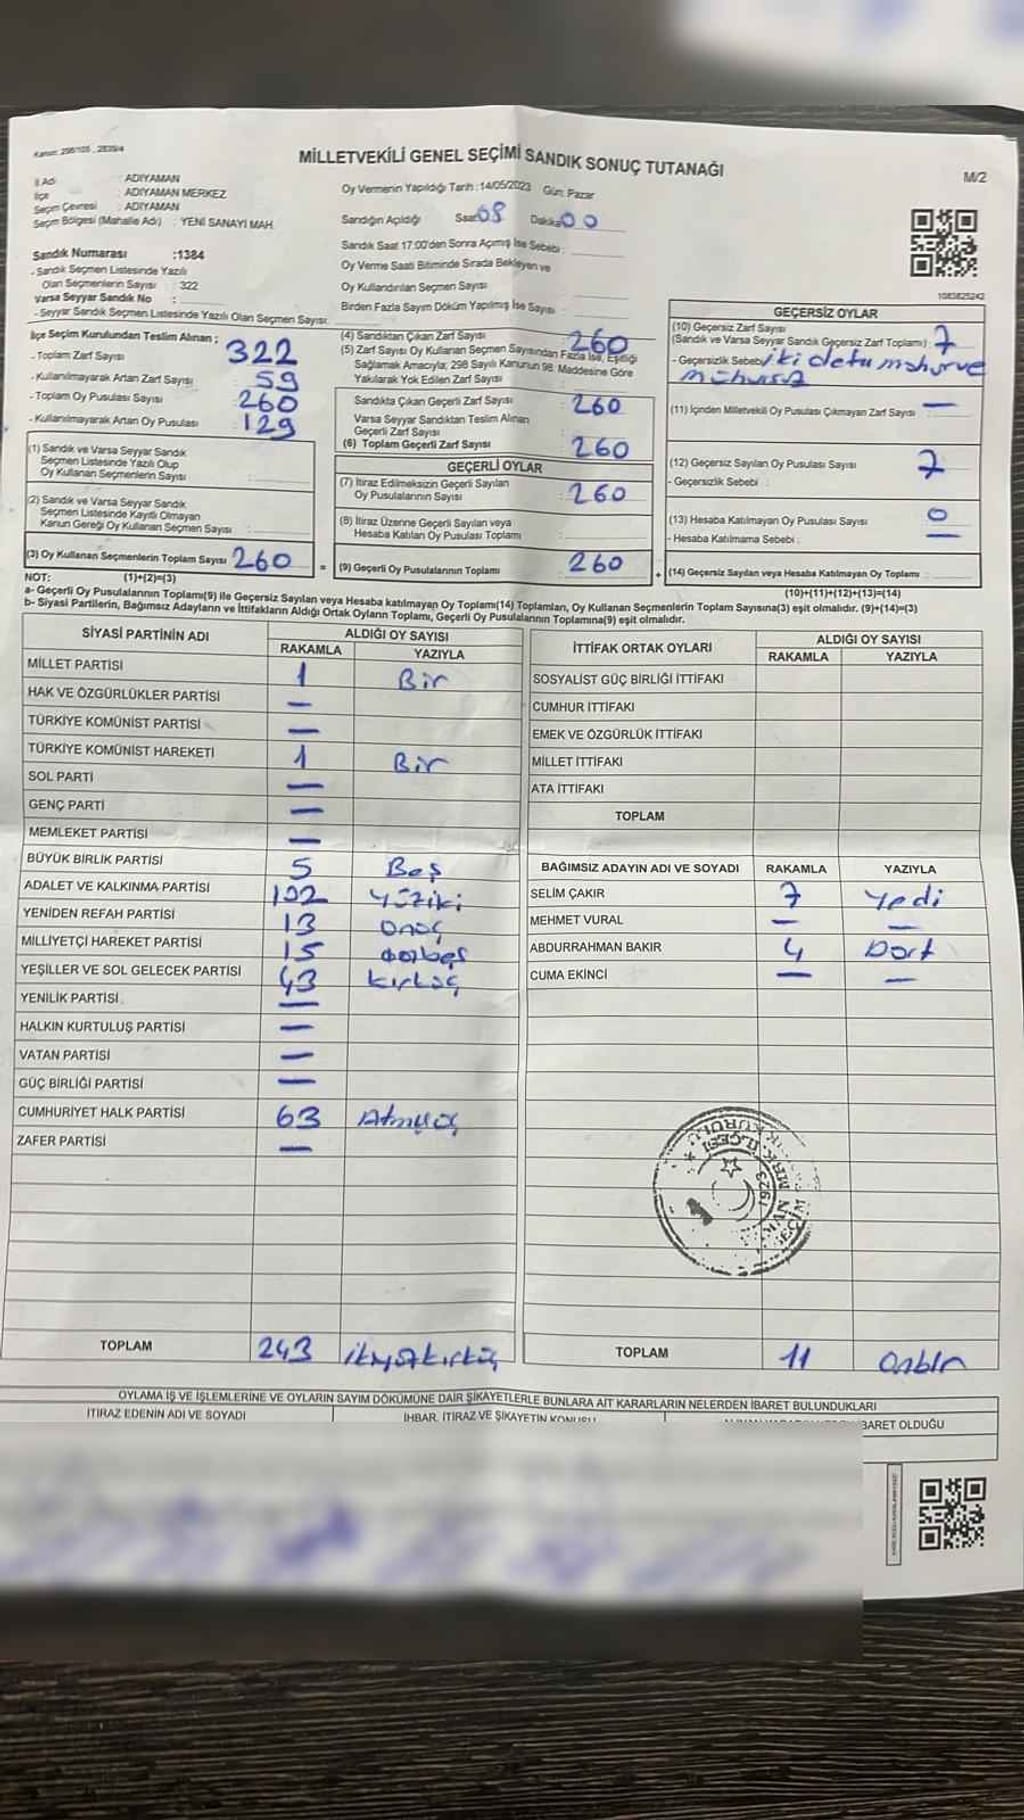 Kanun: 298/105 , 2839/4
MİLLETVEKİLİ GENEL SEÇİMİ SANDIK SONUÇ TUTANAĞI
M/2
İl Adı : ADIYAMAN
İlçe : ADIYAMAN MERKEZ
Seçim Çevresi : ADIYAMAN
Seçim Bölgesi (Mahalle Adı) : YENİ SANAYİ MAH.
Oy Vermenin Yapıldığı Tarih : 14/05/2023 Gün: Pazar
Sandığın Açıldığı Saat 08 Dakika 00
Sandık Saat 17:00'den Sonra Açılmış İse Sebebi :
Oy Verme Saati Bitiminde Sırada Bekleyen ve
Oy Kullandırılan Seçmen Sayısı :
Birden Fazla Sayım Döküm Yapılmış İse Sayısı :
Sandık Numarası :1384
- Sandık Seçmen Listesinde Yazılı
Olan Seçmenlerin Sayısı : 322
Varsa Seyyar Sandık No :
- Seyyar Sandık Seçmen Listesinde Yazılı Olan Seçmen Sayısı:
1083825242
İlçe Seçim Kurulundan Teslim Alınan ;
- Toplam Zarf Sayısı 322
- Kullanılmayarak Artan Zarf Sayısı 59
- Toplam Oy Pusulası Sayısı 260
- Kullanılmayarak Artan Oy Pusulası 129
(1) Sandık ve Varsa Seyyar Sandık
Seçmen Listesinde Yazılı Olup
Oy Kullanan Seçmenlerin Sayısı :
(2) Sandık ve Varsa Seyyar Sandık
Seçmen Listesinde Kayıtlı Olmayan
Kanun Gereği Oy Kullanan Seçmen Sayısı :
(3) Oy Kullanan Seçmenlerin Toplam Sayısı 260
(1)+(2)=(3)
(4) Sandıktan Çıkan Zarf Sayısı 260
(5) Zarf Sayısı Oy Kullanan Seçmen Sayısından Fazla İse, Eşitliği
Sağlamak Amacıyla; 298 Sayılı Kanunun 98. Maddesine Göre
Yakılarak Yok Edilen Zarf Sayısı
Sandıkta Çıkan Geçerli Zarf Sayısı : 260
Varsa Seyyar Sandıktan Teslim Alınan
Geçerli Zarf Sayısı
(6) Toplam Geçerli Zarf Sayısı 260
GEÇERLİ OYLAR
(7) İtiraz Edilmeksizin Geçerli Sayılan
Oy Pusulalarının Sayısı : 260
(8) İtiraz Üzerine Geçerli Sayılan veya
Hesaba Katılan Oy Pusulası Toplamı :
= (9) Geçerli Oy Pusulalarının Toplamı : 260
GEÇERSİZ OYLAR
(10) Geçersiz Zarf Sayısı
(Sandık ve Varsa Seyyar Sandık Geçersiz Zarf Toplamı) : 7
- Geçersizlik Sebebi : iki defa mühür ve
mühürsüz
(11) İçinden Milletvekili Oy Pusulası Çıkmayan Zarf Sayısı : —
(12) Geçersiz Sayılan Oy Pusulası Sayısı : 7
- Geçersizlik Sebebi :
(13) Hesaba Katılmayan Oy Pusulası Sayısı : 0
- Hesaba Katılmama Sebebi : —
+ (14) Geçersiz Sayılan veya Hesaba Katılmayan Oy Toplamı :
(10)+(11)+(12)+(13)=(14)
NOT:
a- Geçerli Oy Pusulalarının Toplamı(9) ile Geçersiz Sayılan veya Hesaba katılmayan Oy Toplamı(14) Toplamları, Oy Kullanan Seçmenlerin Toplam Sayısına(3) eşit olmalıdır. (9)+(14)=(3)
b- Siyasi Partilerin, Bağımsız Adayların ve İttifakların Aldığı Ortak Oyların Toplamı, Geçerli Oy Pusulalarının Toplamına(9) eşit olmalıdır.
SİYASİ PARTİNİN ADI ALDIĞI OY SAYISI
RAKAMLA YAZIYLA
MİLLET PARTİSİ 1 Bir
HAK VE ÖZGÜRLÜKLER PARTİSİ —
TÜRKİYE KOMÜNİST PARTİSİ —
TÜRKİYE KOMÜNİST HAREKETİ 1 Bir
SOL PARTİ —
GENÇ PARTİ —
MEMLEKET PARTİSİ —
BÜYÜK BİRLİK PARTİSİ 5 Beş
ADALET VE KALKINMA PARTİSİ 102 Yüziki
YENİDEN REFAH PARTİSİ 13 Onüç
MİLLİYETÇİ HAREKET PARTİSİ 15 Onbeş
YEŞİLLER VE SOL GELECEK PARTİSİ 43 kırküç
YENİLİK PARTİSİ —
HALKIN KURTULUŞ PARTİSİ —
VATAN PARTİSİ —
GÜÇ BİRLİĞİ PARTİSİ —
CUMHURİYET HALK PARTİSİ 63 Atmışüç
ZAFER PARTİSİ —
TOPLAM 243 ikiyüzkırküç
İTTİFAK ORTAK OYLARI ALDIĞI OY SAYISI
RAKAMLA YAZIYLA
SOSYALİST GÜÇ BİRLİĞİ İTTİFAKI
CUMHUR İTTİFAKI
EMEK VE ÖZGÜRLÜK İTTİFAKI
MİLLET İTTİFAKI
ATA İTTİFAKI
TOPLAM
BAĞIMSIZ ADAYIN ADI VE SOYADI RAKAMLA YAZIYLA
SELİM ÇAKIR 7 Yedi
MEHMET VURAL — —
ABDURRAHMAN BAKIR 4 Dört
CUMA EKİNCİ — —
TOPLAM 11 Onbir
OYLAMA İŞ VE İŞLEMLERİNE VE OYLARIN SAYIM DÖKÜMÜNE DAİR ŞİKAYETLERLE BUNLARA AİT KARARLARIN NELERDEN İBARET BULUNDUKLARI
İTİRAZ EDENİN ADI VE SOYADI
İHBAR, İTİRAZ VE ŞİKAYETİN KONUSU
BARET OLDUĞU